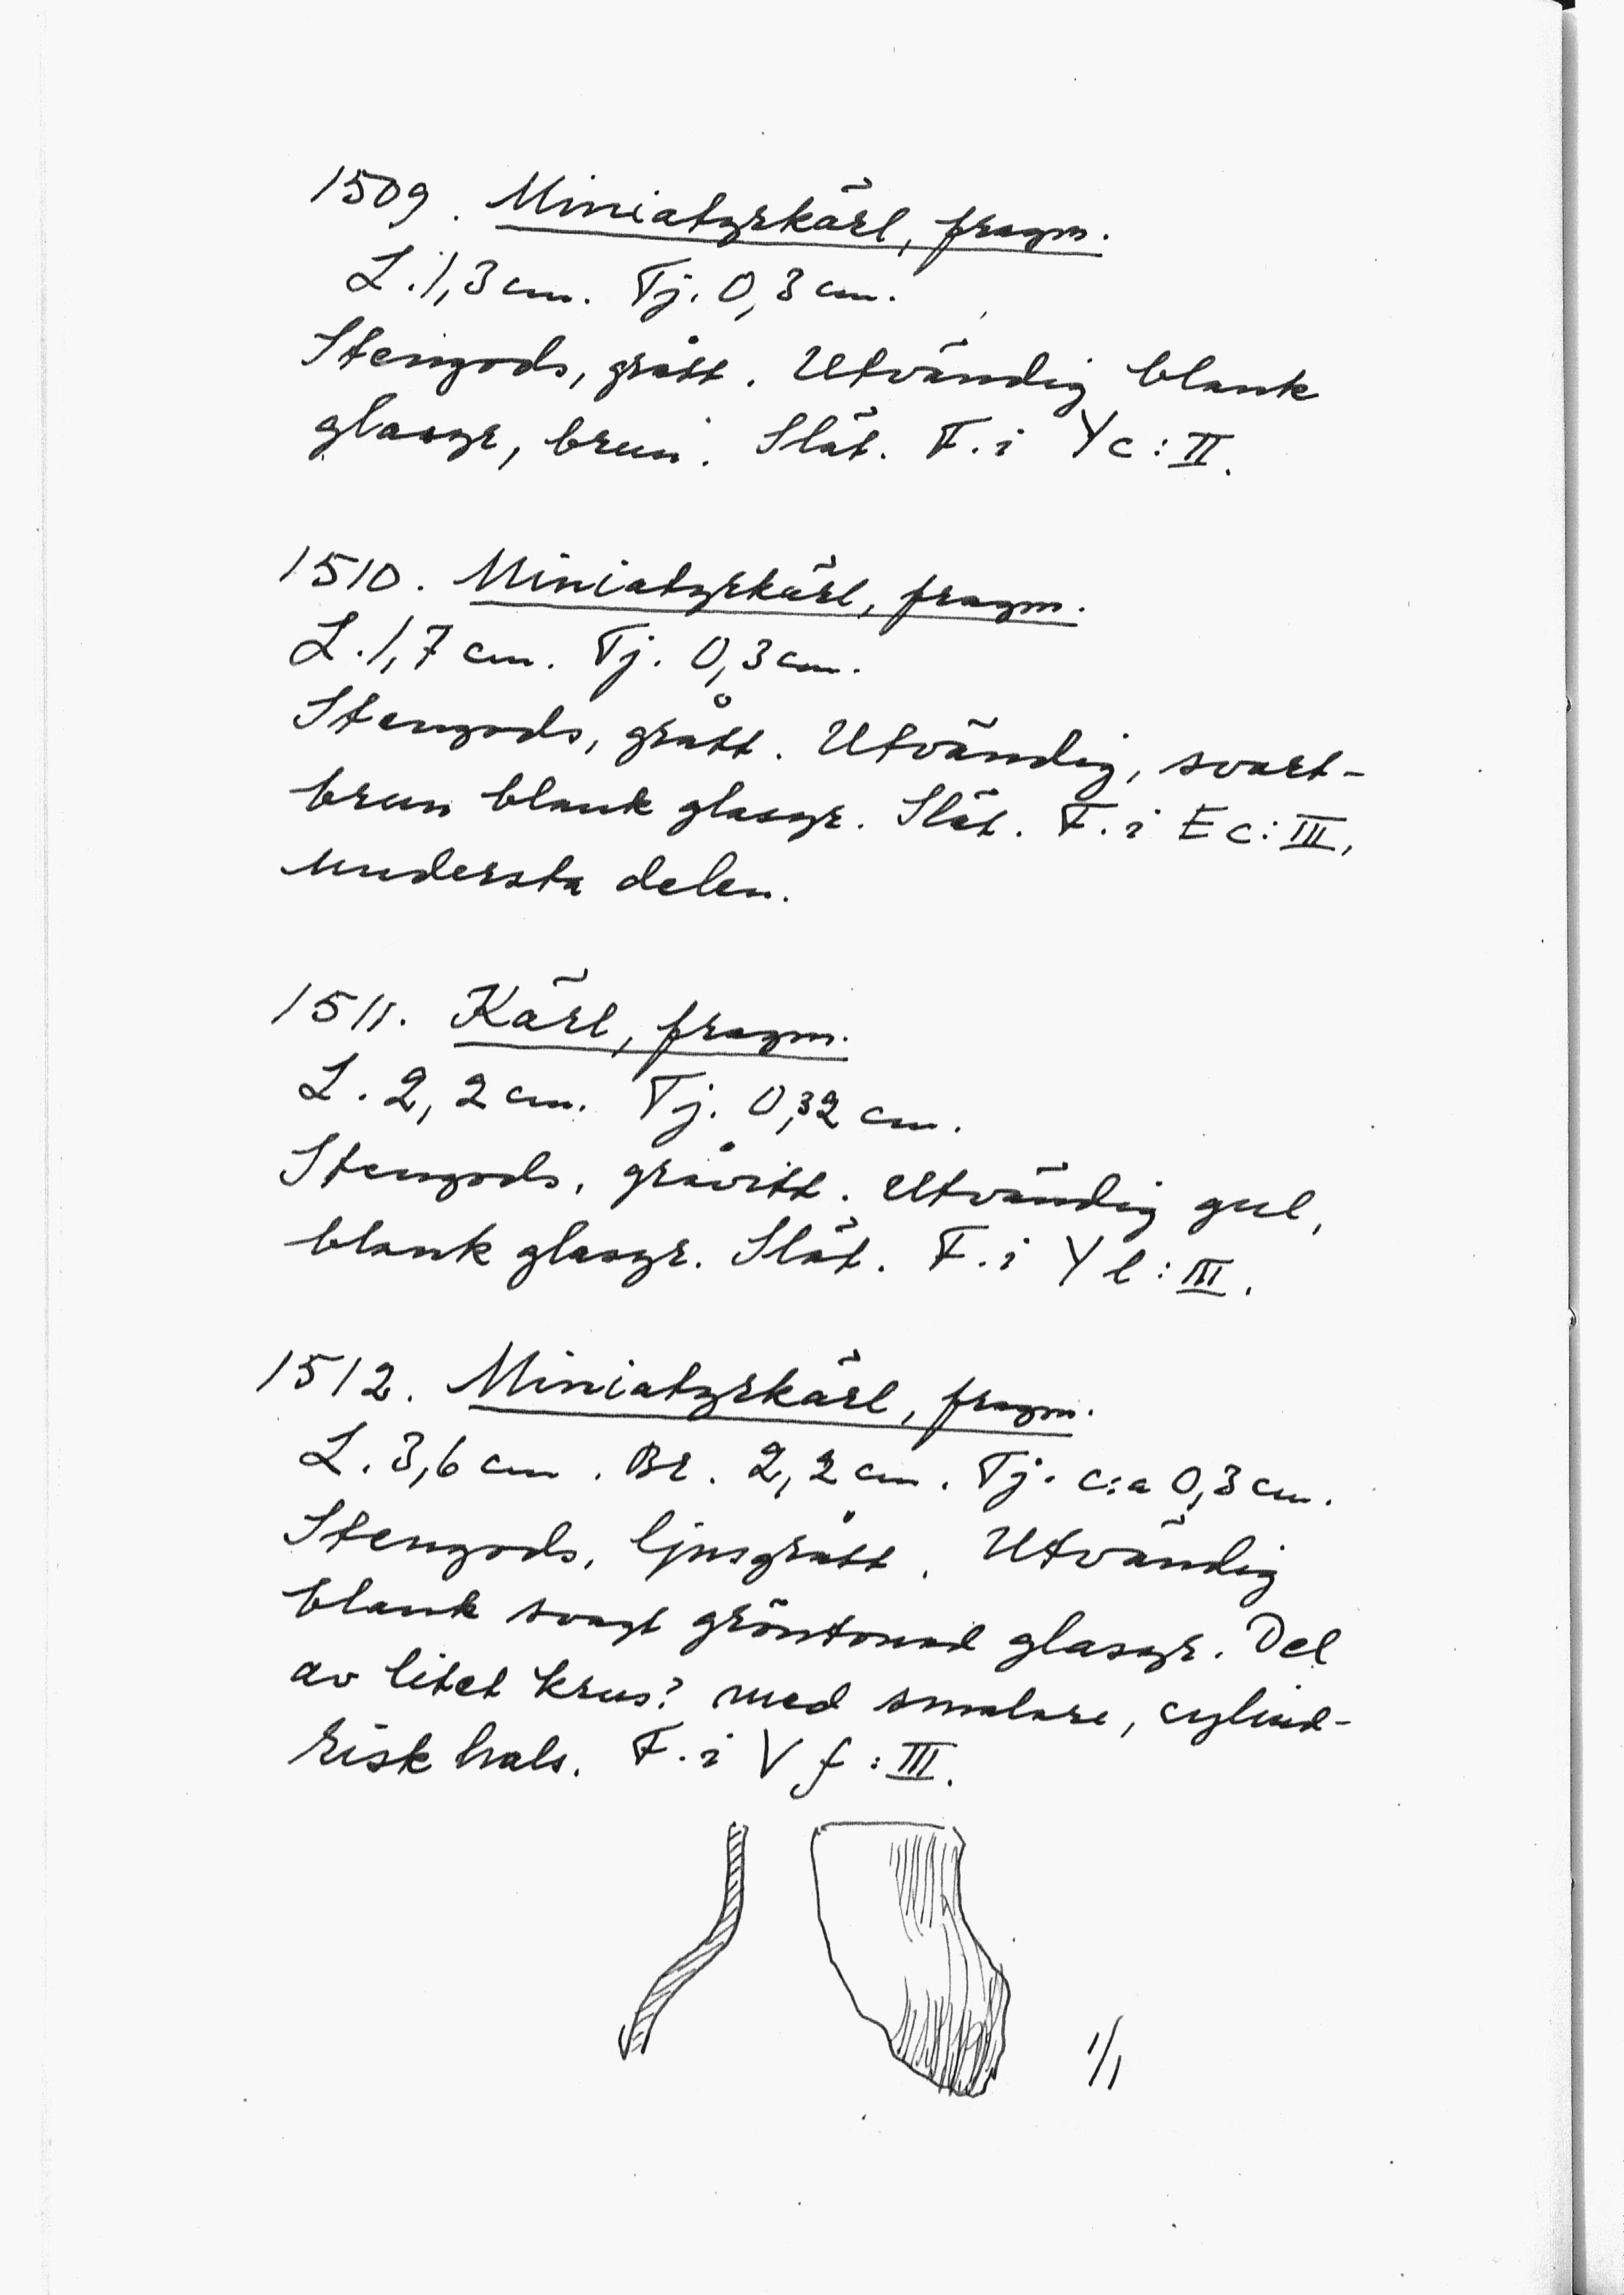 1509. Miniatyrkärl, fragm.
L. 1,3 cm. Tj. 0,3 cm.
Stengods, grått. Utvändig blank
glasyr, brun. Slät. F. i Y c: II.
1510. Miniatyrkärl, fragm.
L. 1,7 cm. Tj. 0,3 cm.
Stengods, grått. Utvändig, svart-
brun blank glasyr. Slät. F. i E c: III,
understa delen.
1511. Kärl, fragm.
L. 2,2 cm. Tj. 0,32 cm.
Stengods, gråvitt. Utvändig gul,
blank glasyr. Slät. F. i Y l: III.
1512. Miniatyrkärl, fragm.
L. 3,6 cm. Br. 2,2 cm. Tj. c:a 0,3 cm.
Stengods, ljusgrått. Utvändig
blank svagt gröntonad glasyr. Del
av litet krus? med smalare, cylind-
risk hals. F. i V f: III.
1/1